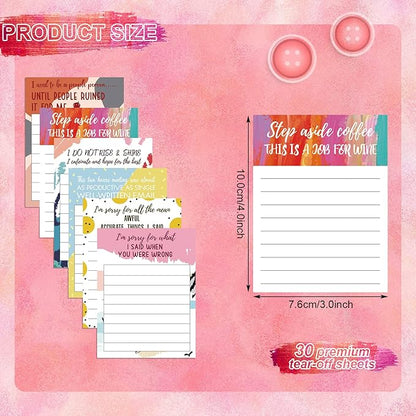 PRODUCT SIZE
I used to be a people person...
UNTIL PEOPLE RUINED
IT FOR ME
Step aside coffee
THIS IS A JOB FOR WINE
I DO NOT RISE & SHINE
I caffeinate and hope for the best
This two hours meeting was about
AS PRODUCTIVE AS SINGLE
WELL-WRITTEN EMAIL
I'm sorry for all the mean
AWFUL
ACCURATE THINGS I SAID
I'm sorry for what
I SAID WHEN
YOU WERE WRONG
Step aside coffee
THIS IS A JOB FOR WINE
10.0cm/4.0inch
7.6cm/3.0inch
30 premium
tear-off sheets